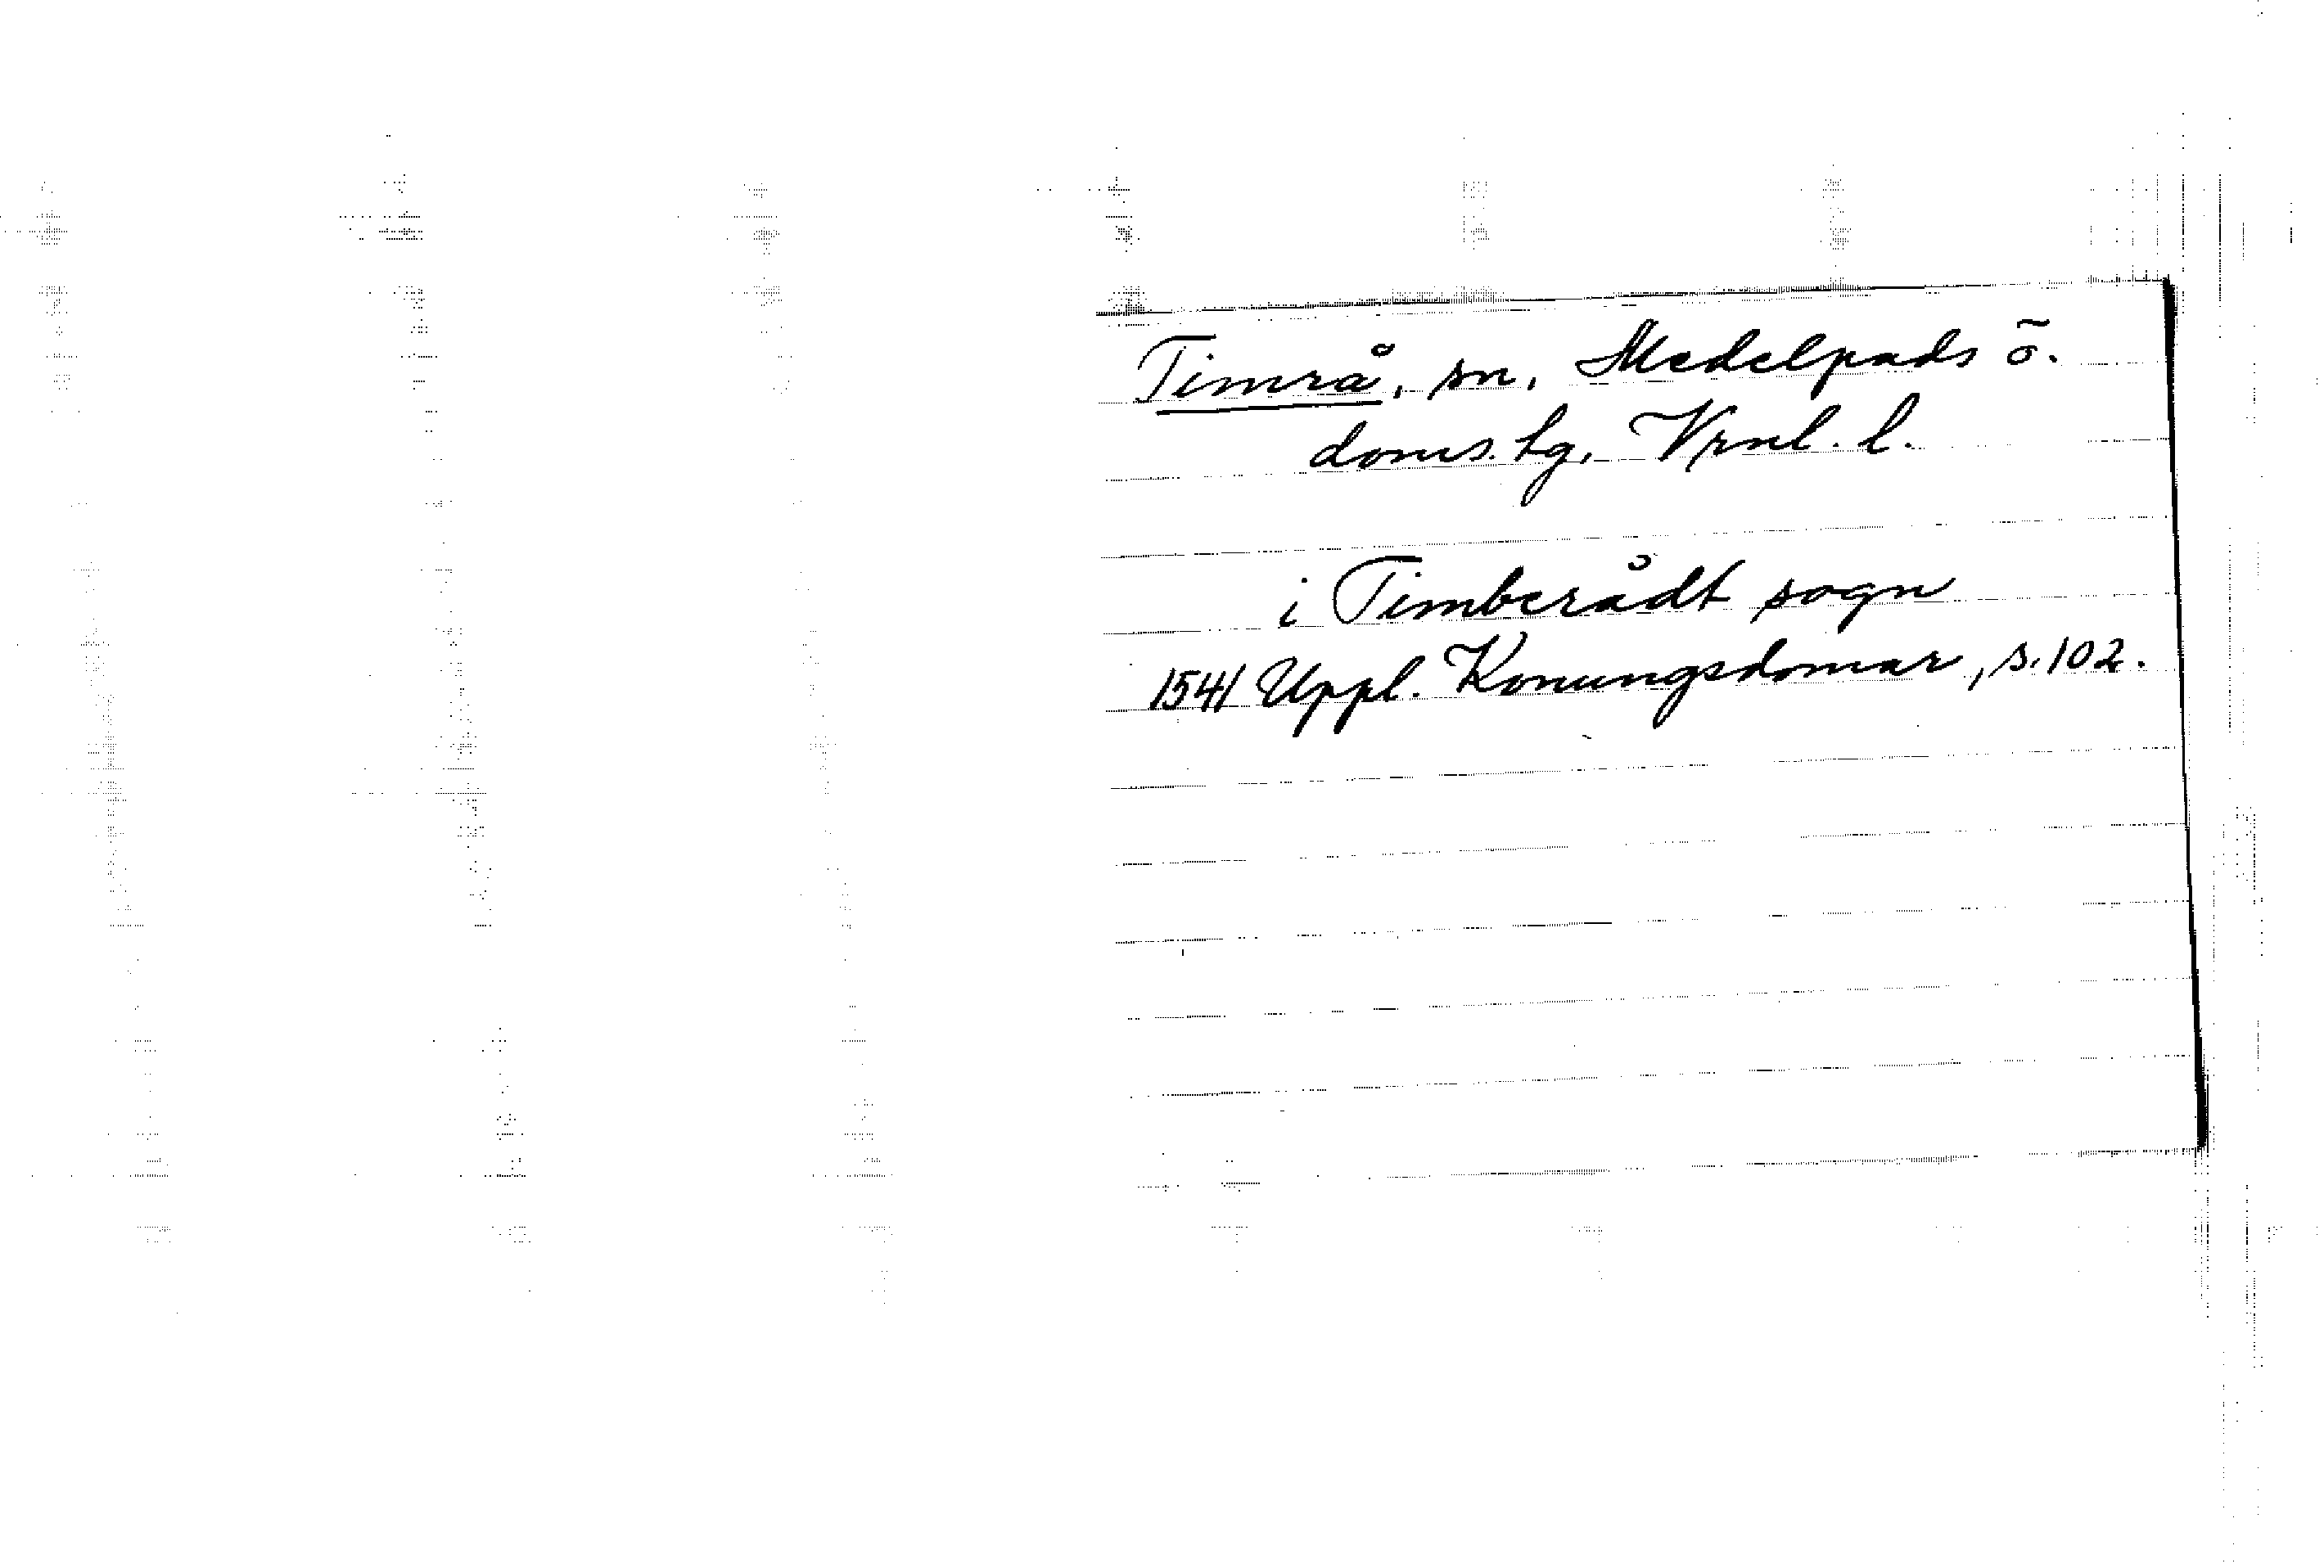 Timrå, sn, Medelpads ö.
doms. tg, Vrnl. l.
i Timberådt sogn
1541 Uppl. Konungsdomar, s. 102.